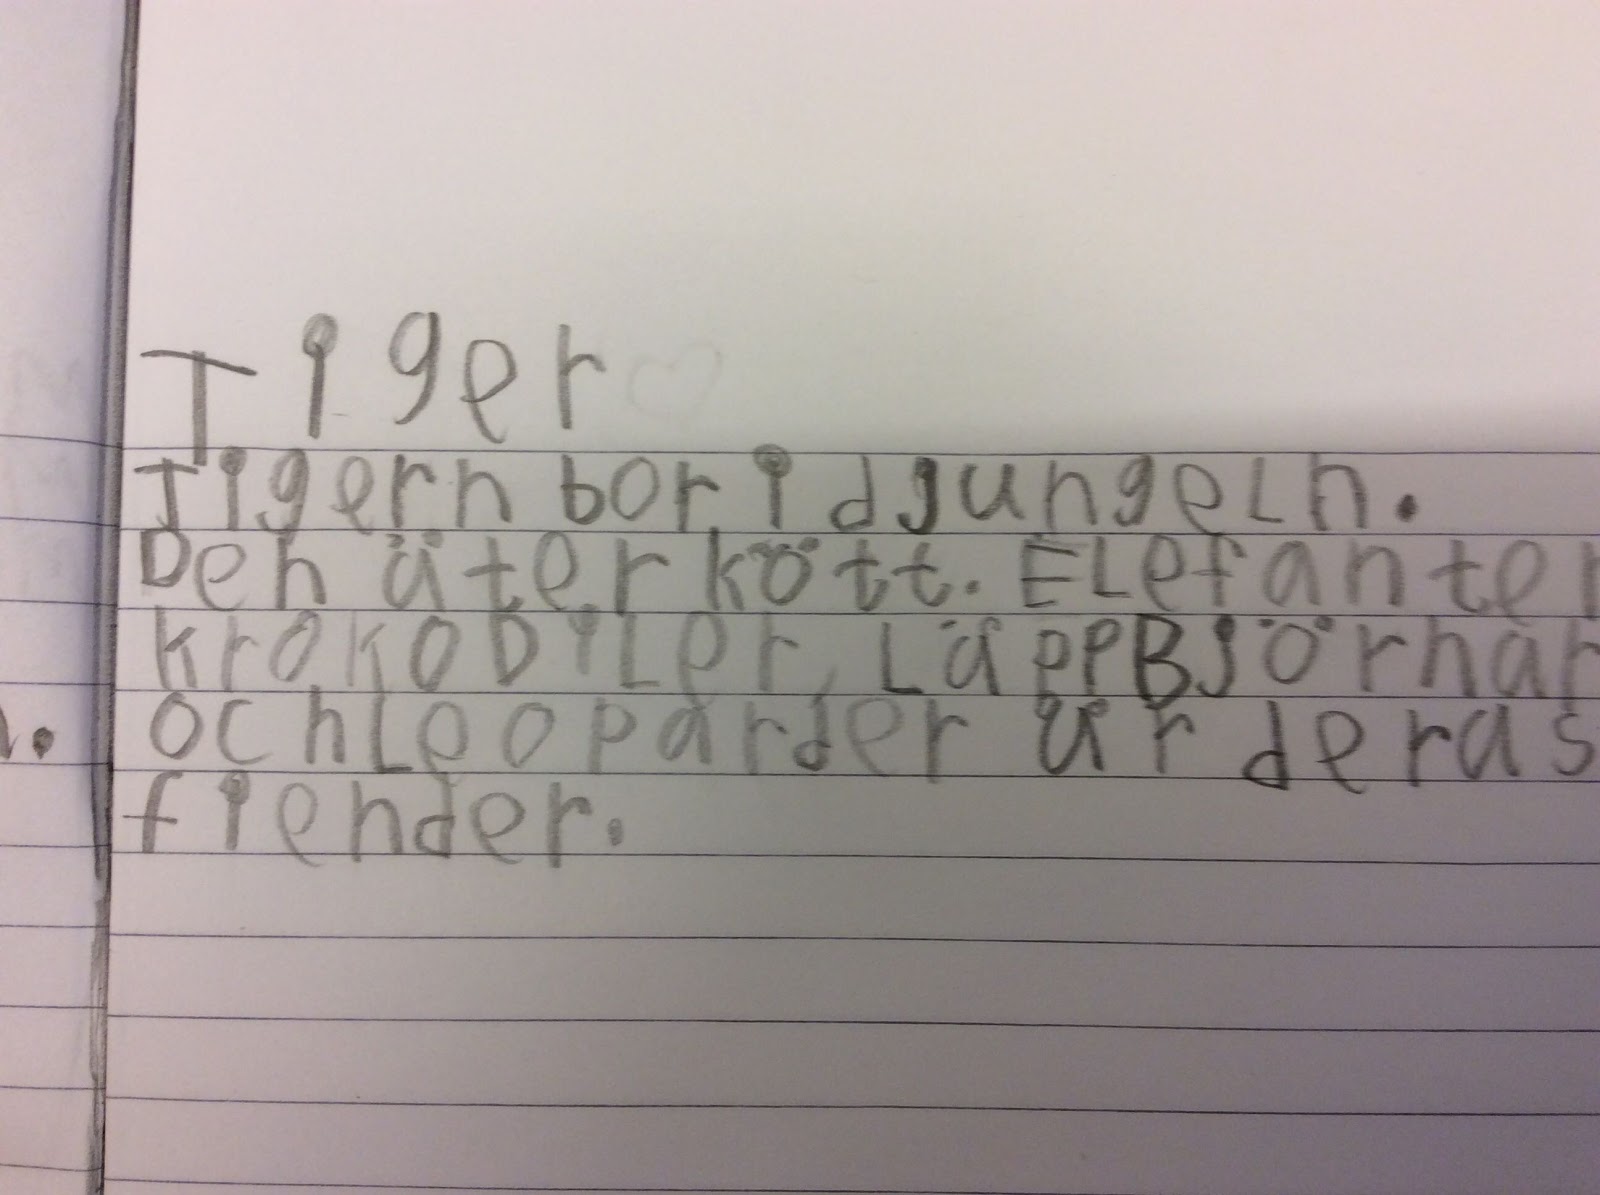 Tiger
Tigern bor i djungeln.
Den äter kött. Elefanter
krokoDiler, LäppBjörnar
och leoparder är deras
fiender.